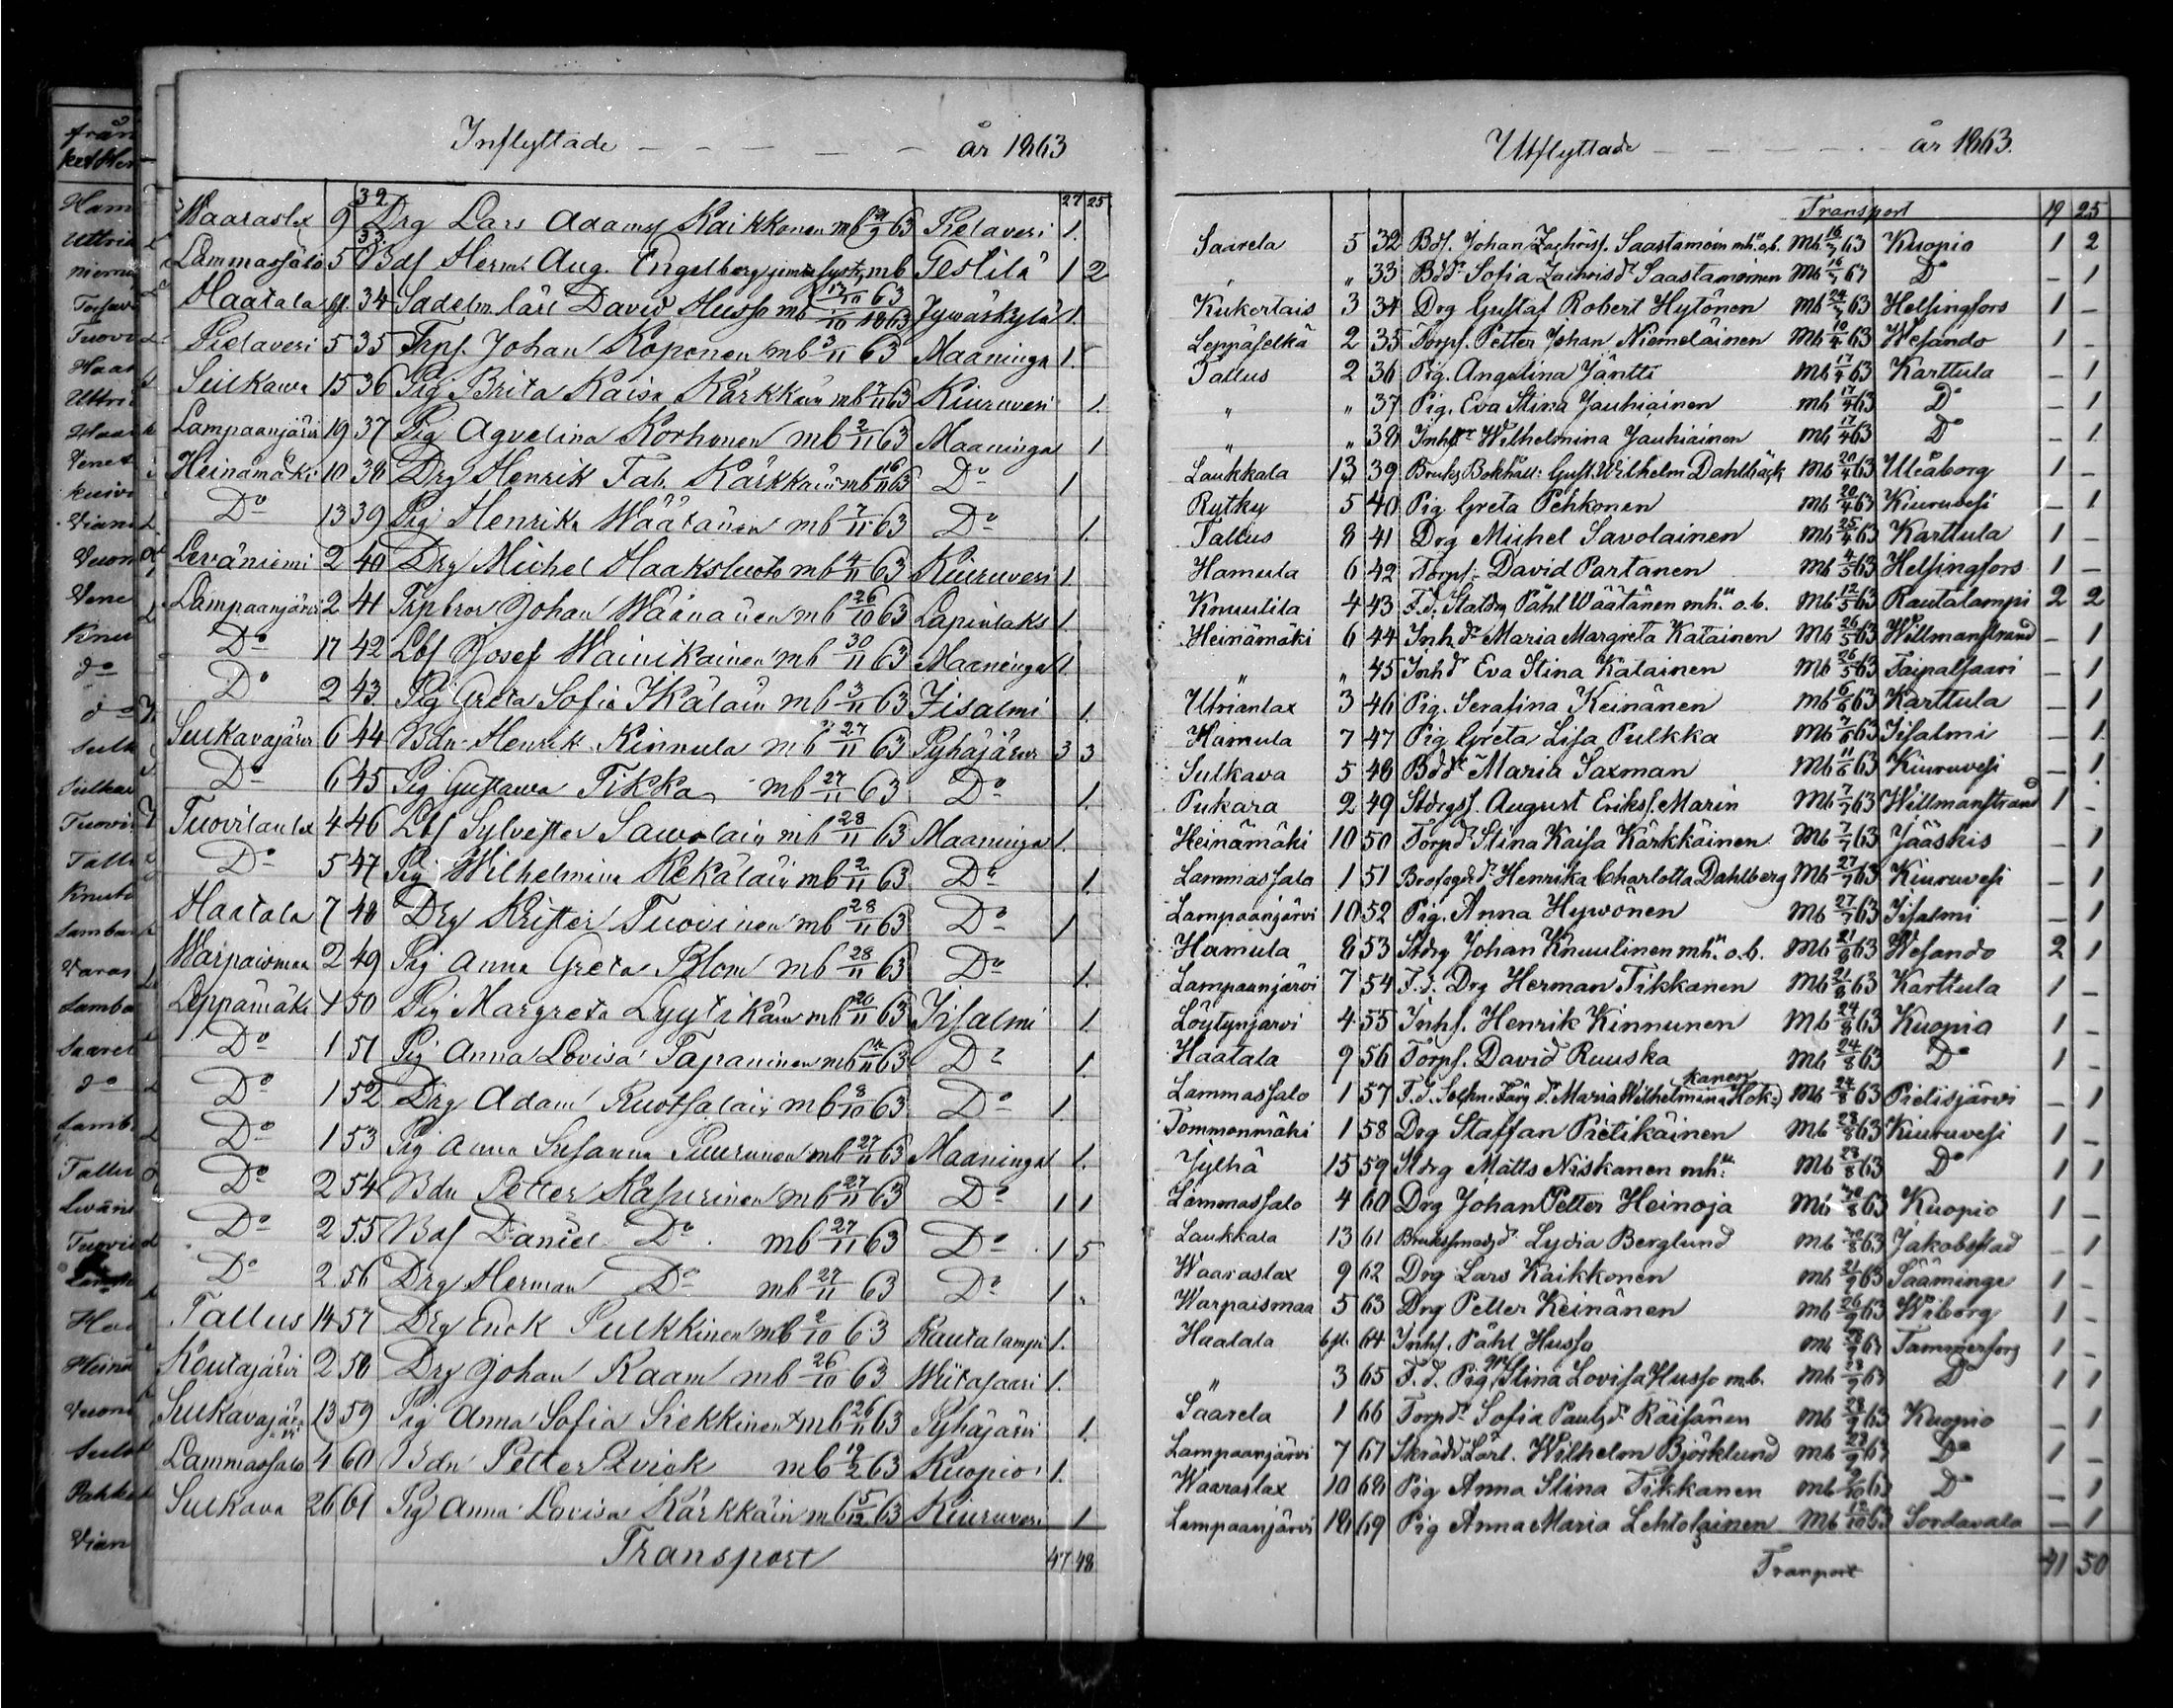 Inflyttade år 1863
27 25
Waaraslax 9 32 Drg Lars Adamss Kaikkonen mb 21/9 63 Pielavesi 1
Lammassalo 5 33 Bdf Herm Aug. Engelberg mb 17/10 63 Testilä 1 2
Haatala 34 Sadelm lärl David Husso mb 1/10 1863 Jywäskylä 1.
Pielavesi 5 35 Trpf. Johan Koponen mb 3/11 63 Maaninga 1.
Sulkawa 15 36 Pig Brita Kaisa Kärkkäin mb 7/11 63 Kiuruvesi 1.
Lampaanjärvi 19 37 Pig Agvelina Korhonen mb 2/11 63 Maaninga 1
Heinämäki 10 38 Drg Henrik Fab. Kärkkäin mb 16/11 63 Do 1
Do 13 39 Pig Henrika Wäätänen mb 7/11 63 Do 1.
Leväniemi 2 40 Drg Michel Haaksluoto mb 4/11 63 Kiuruvesi 1.
Lampaanjärvi 2 41 Trpbror Johan Wäänänen mb 26/10 63 Lapinlaks 1.
Do 17 42 Lbf Josef Wainikainen mb 30/11 63 Maaninga 1.
Do 2 43 Pig Greta Sofia Ikäläin mb 3/11 63 Iisalmi 1.
Sulkavajärvi 6 44 Bdn Henrik Kinnula mb 27/11 63 Pyhäjärvi 3 3
Do 6 45 Pig Gustawa Tikka mb 27/11 63 Do 1.
Tuovilanlax 4 46 Lbf Sylvester Sawolain mb 28/11 63 Maaninga 1.
Do 5 47 Pig Wilhelmina Kekäläin mb 2/11 63 Do 1.
Haatala 7 48 Drg Krister Tuovinen mb 28/11 63 Do 1
Warpaismaa 2 49 Pig Anna Greta Blom mb 28/11 63 Do 1.
Leppämäki 4 50 Pig Margreta Lyytikäin mb 20/11 63 Iisalmi 1.
Do 1 51 Pig Anna Lovisa Tapaninen mb 14/11 63 Do 1.
Do 1 52 Drg Adam Ruotsalain mb 8/10 63 Do 1.
Do 1 53 Pig Anna Susanna Puurunen mb 27/11 63 Maaninga 1.
Do 2 54 Bdn Petter Kasurinen mb 27/11 63 Do 1 1
Do 2 55 Bdf Daniel Do mb 27/11 63 Do 1 5
Do 2 56 Drg Herman Do mb 27/11 63 Do 1 "
Tallus 14 57 Drg Enok Pulkkinen mb 2/10 63 Rautalampi 1.
Koutajärvi 2 58 Drg Johan Raam mb 26/10 63 Wiitasaari 1.
Sulkavajärvi 13 59 Pig Anna Sofia Siekkinen mb 26/11 63 Pyhäjärvi 1.
Lammassalo 4 60 Bdn Petter Qvick mb 19/2 63 Kuopio 1.
Sulkava 26 61 Pig Anna Lovisa Kärkkäin mb 5/12 63 Kiuruvesi 1
Transport 47 48
Utflyttade år 1863.
Transport 19 25
Saarela 5 32 Bdf. Johan Zachriss. Saastamoin mhu o.b. Mb 16/7 63 Kuopio 1 2
" " 33 Bddr Sofia Zachrisdr Saastamoinen Mb 16/7 63 Do – 1
Kukertais 3 34 Drg Gustaf Robert Hytönen Mb 24/7 63 Helsingfors 1 –
Leppäselkä 2 35 Torpf. Petter Johan Niemeläinen Mb 10/4 63 Wesando 1 –
Tallus 2 36 Pig. Angelina Jäntti Mb 17/4 63 Karttula – 1
" " 37 Pig. Eva Stina Jauhiainen mb 17/4 63 Do – 1
" " 38 Inhdr Wilhelmina Jauhiainen mb 17/4 63 Do – 1
Laukkala 13 39 Bruks Bokhåll: Gust. Wilhelm Dahlbäck Mb 20/4 63 Uleåborg 1 –
Rytky 5 40 Pig Greta Pehkonen mb 20/4 63 Kiuruvesi – 1
Tallus 8 41 Drg Michel Savolainen Mb 25/4 63 Karttula 1 –
Hamula 6 42 Torpf. David Partanen mb 4/5 63 Helsingfors 1 –
Knuutila 4 43 F.d. Statdrg Påhl Wäätänen mhu o.b. Mb 12/5 63 Rautalampi 2 2
Heinämäki 6 44 Inhdr Maria Margreta Katainen Mb 26/5 63 Willmanstrand – 1
" " 45 Inhdr Eva Stina Katainen Mb 26/5 63 Taipalsaari – 1
Utrianlax 3 46 Pig. Serafina Keinänen mb 6/6 63 Karttula – 1
Hamula 7 47 Pig Greta Lisa Pulkka Mb 7/6 63 Iisalmi – 1
Sulkava 5 48 Bddr Maria Saxman Mb 11/6 63 Kiuruvesi – 1
Pukara 2 49 Stdrgs. August Eriks. Marin Mb 7/7 63 Willmanstrand 1 –
Heinämäki 10 50 Torpdr Stina Kaisa Kärkkäinen Mb 7/7 63 Jääskis – 1
Lammassalo 1 51 Brofogdedr Henrika Charlotta Dahlberg Mb 27/7 63 Kiuruvesi – 1
Lampaanjärvi 10 52 Pig. Anna Hywönen Mb 27/7 63 Iisalmi – 1
Hamula 8 53 Stdrg Johan Knuutinen mhu. o.b. Mb 21/8 63 Wesando 2 1
Lampaanjärvi 7 54 F.d. Drg Herman Tikkanen Mb 21/8 63 Karttula 1 –
Löytynjärvi 4 55 Inhs. Henrik Kinnunen Mb 24/8 63 Kuopio 1 –
Haatala 9 56 Torpf. David Ruuska Mb 24/8 63 Do 1 –
Lammassalo 1 57 F.d. Sockn. Färg. dr Maria Wilhelmina Hok=kanen Mb 24/8 63 Pielisjärvi – 1
Tommonmäki 1 58 Drg Staffan Pietikäinen Mb 28/8 63 Kiuruvesi 1 –
Jylhä 15 59 Stdrg Matts Niskanen mhu Mb 28/8 63 Do 1 1
Lammassalo 4 60 Drg Johan Petter Heinoja Mb 30/8 63 Kuopio 1 –
Laukkala 13 61 Brukssmedsdr Lydia Berglund mb 30/8 63 Jakobstad – 1
Waaraslax 9 62 Drg Lars Kaikkonen mb 21/9 63 Sääminge 1 –
Warpaismaa 5 63 Drg Petter Keinänen mb 26/9 63 Wiborg 1 –
Haatala 64 Inhs. Påhl Husso mb 28/9 63 Tammerfors 1 –
" 3 65 F.d. Pig Stina Lovisa Husso m.b. mb 28/9 63 Do 1 1
Saarela 1 66 Torpdr Sofia Paulsdr Räisänen mb 28/9 63 Kuopio – 1
Lampaanjärvi 7 67 Skrädd. Lärl. Wilhelm Björklund mb 28/9 63 Do 1 –
Waaraslax 10 68 Pig Anna Stina Tikkanen mb 9/10 63 Do – 1
Lampaanjärvi 18 69 Pig Anna Maria Lehtolainen Mb 12/10 63 Sordavala – 1
Tranport 41 50